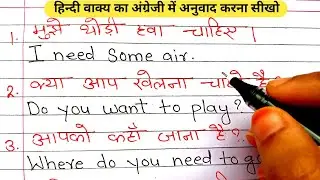 हिन्दी वाक्य का अंग्रेजी में अनुवाद करना सीखो
1. मुझे थोड़ी हवा चाहिए।
I need Some air.
2. क्या आप खेलना है?
Do you want to play?
3. आपको कहाँ जाना है?
Where do you need to